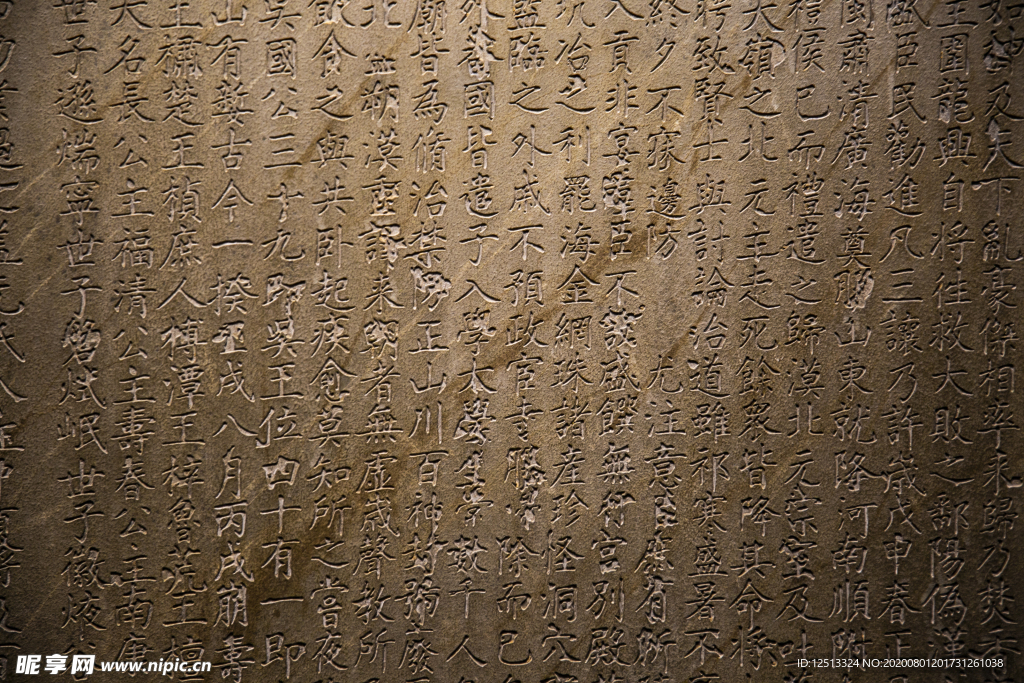 神及天下亂豪傑相率来歸乃焚香
王闓龍興自將往救大敗之鄱陽偽漢
臣民勸進凡三讓乃許歲戊申春正
閩肅清廣海奠服山東就降河南順附
禮侯已而禮遣之歸漠北元宗室及吐
大嶺之北元主走死餘衆皆降其命將
聘致賢士與討論治道雖祁寒盛暑不
終夕不寐邊防尤注意庫有所
入貢非宴群臣不設盛饌無行宮別殿
坑冶之利罷海金網珠諸產珍怪洞穴
監臨之外戚不預政宦寺服除而已
外番國皆遣子入學太學生常數千人
廟皆為脩治禁防正山川百神封號廢
北無朔漠来朝者無虛歲聲教所
飲食之與共臥起疾愈莫知所之當夜
吳國公三十九即吳王位四十有一即
山有數古今一揆壬戌八月丙戌崩壽
王楚王楨庶人榑潭王梓魯荒王檀
大名長公主福清公主壽春公主南康
世子遜煓寧世子磐烒岷世子徽焲
昵享网 www.nipic.cn
ID:12513324 NO:20200801201731261038